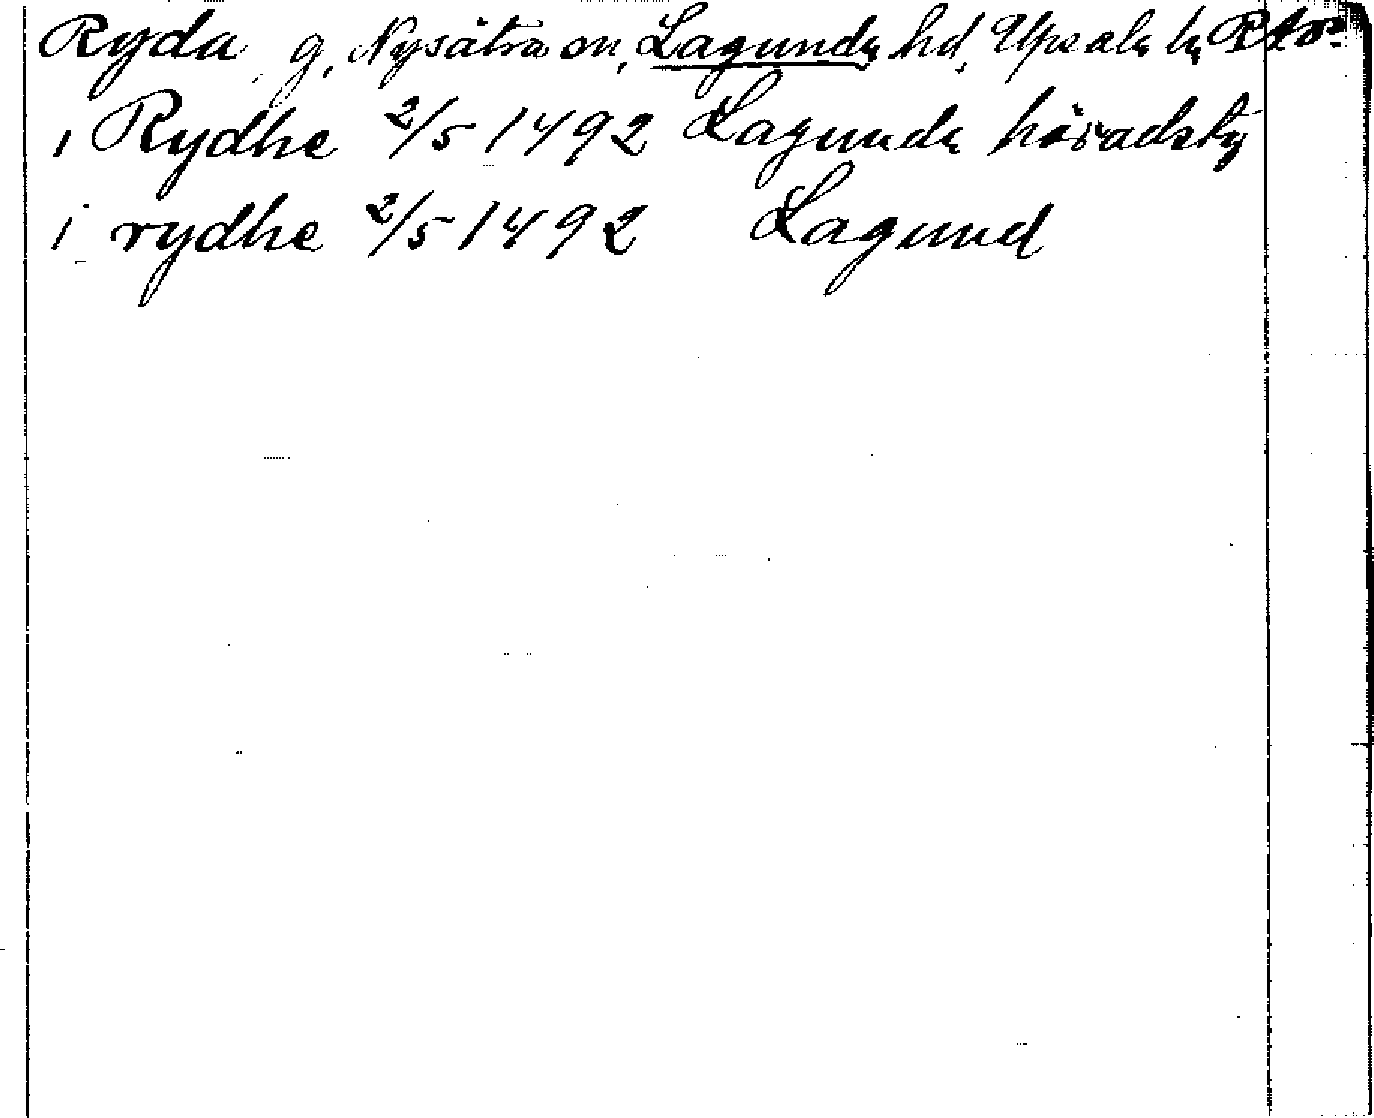 Ryda g, Nysätra sn, Lagunda hd, Upsala l,
i Rydhe 2/5 1492 Lagunda häradsby
i rydhe 2/5 1492 Lagund